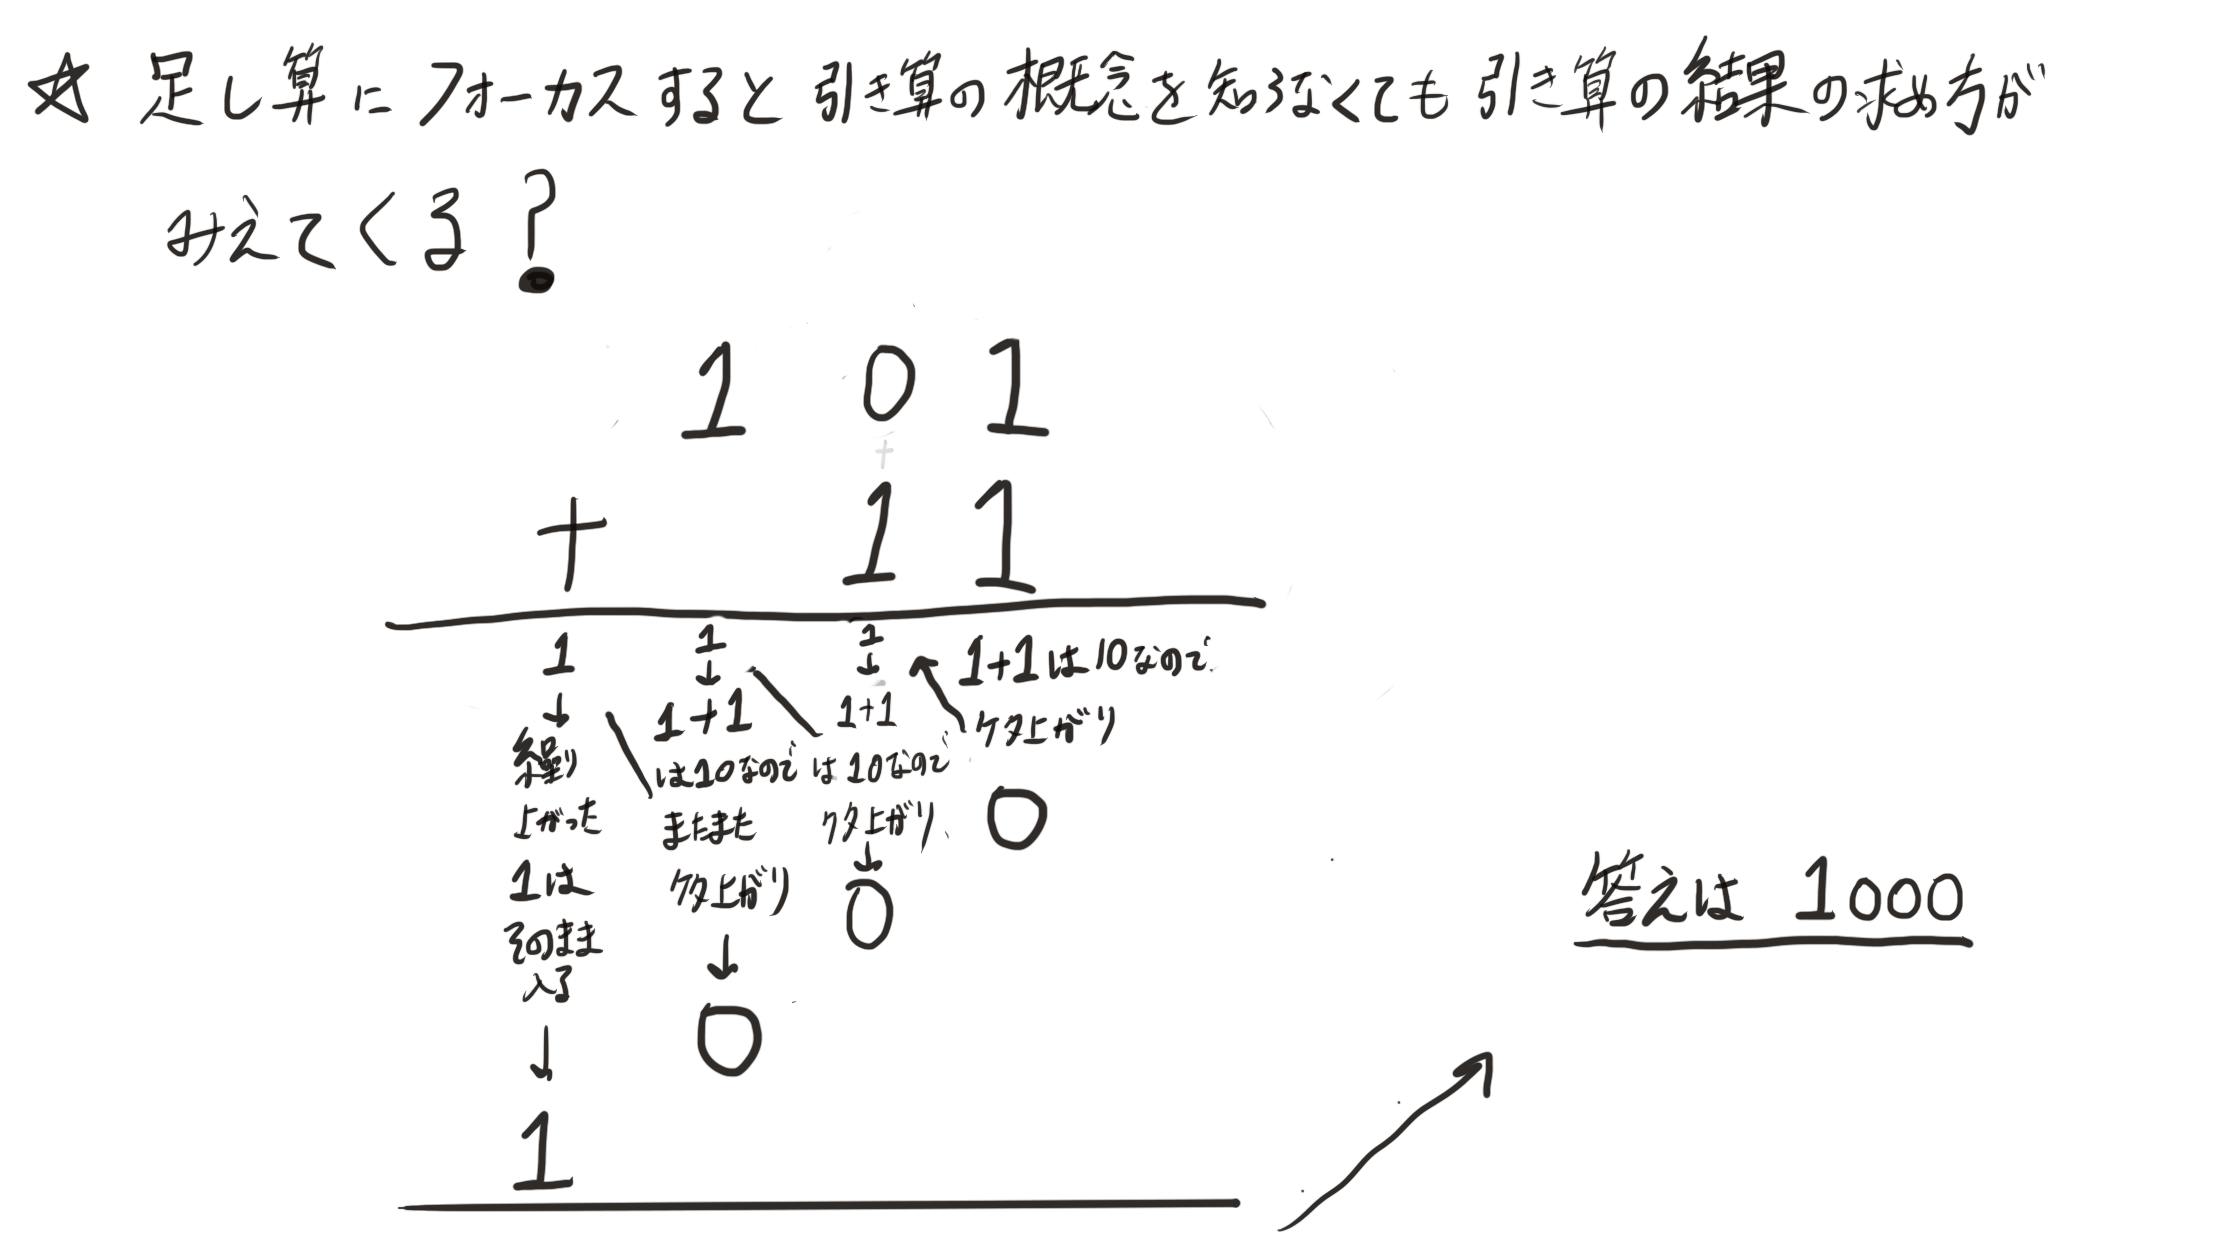 ☆ 足し算にフォーカスすると引き算の概念を知らなくても引き算の結果の求め方が
みえてくる?
1 0 1
+
+ 1 1
1+1は10なので
ケタ上がり
0
1
↓
1+1
は10なので
ケタ上がり
↓
0
1
↓
1+1
は10なので
またまた
ケタ上がり
↓
0
1
↓
繰り
上がった
1は
そのまま
入る
↓
1
答えは 1000